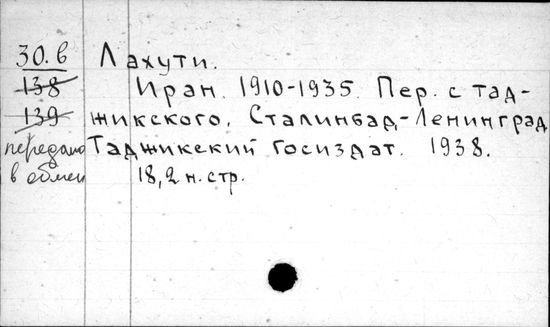 30.в Лахути.
138 Иран. 1910-1935. Пер. с тад-
139 жикского. Сталинбад-Ленинград
передано Таджикский Госиздат. 1938.
в обмен 18,2 н. стр.